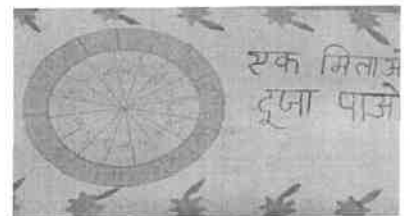 एक मिलाओ
दूजा पाओ